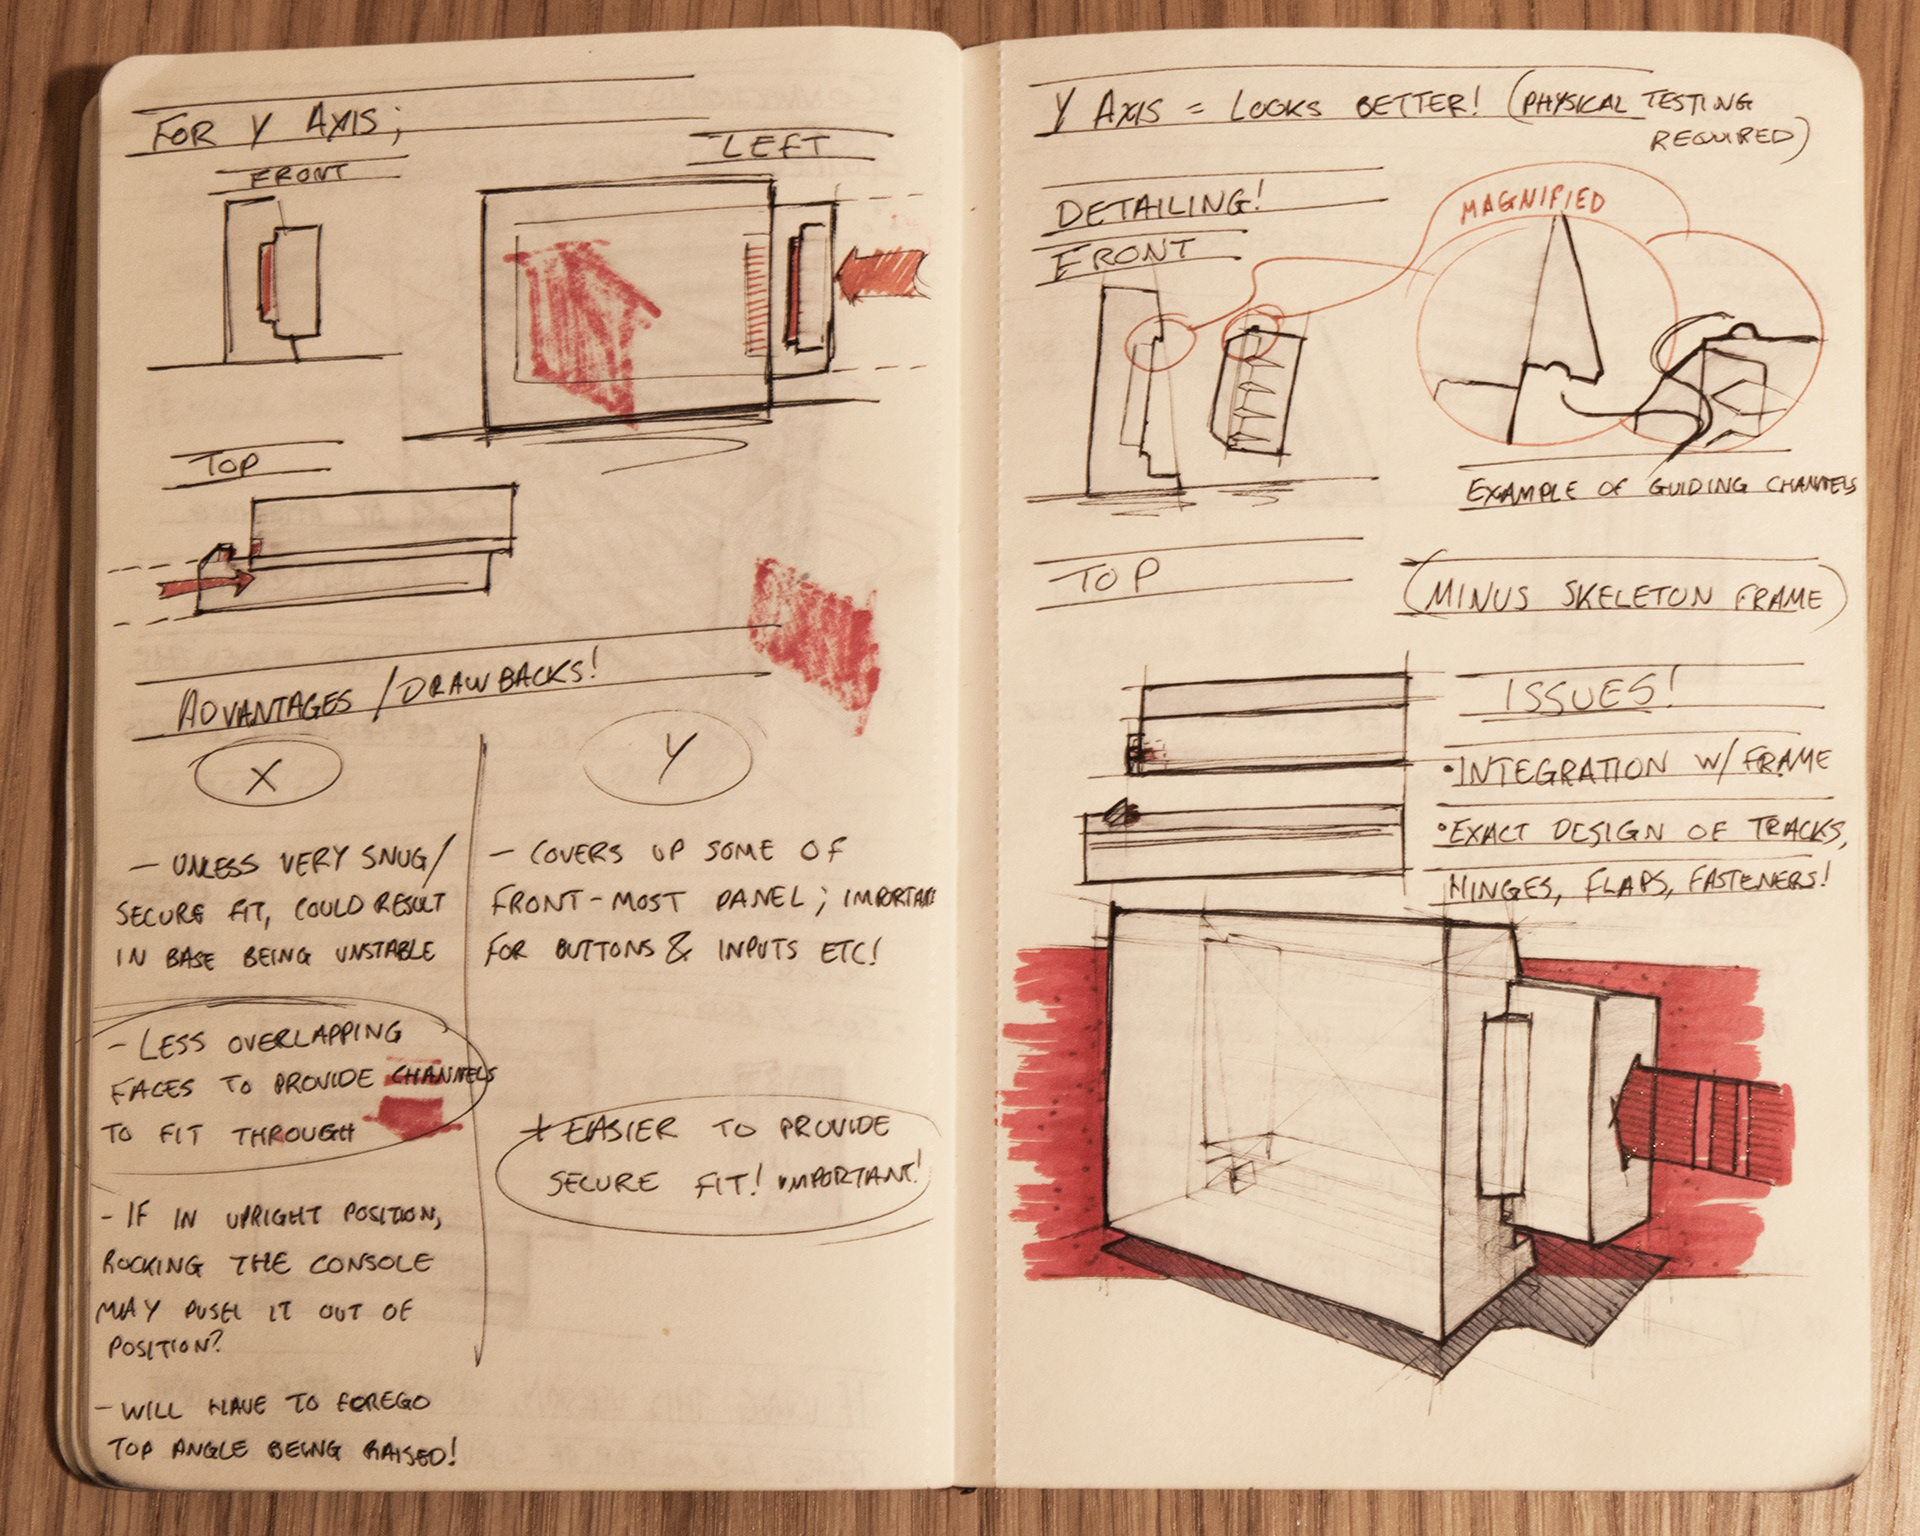 FOR Y AXIS;
FRONT
LEFT
TOP
ADVANTAGES / DRAWBACKS!
X
- UNLESS VERY SNUG/
SECURE FIT, COULD RESULT
IN BASE BEING UNSTABLE
- LESS OVERLAPPING
FACES TO PROVIDE CHANNELS
TO FIT THROUGH
- IF IN UPRIGHT POSITION,
ROCKING THE CONSOLE
MAY PUSH IT OUT OF
POSITION?
- WILL HAVE TO FOREGO
TOP ANGLE BEING RAISED!
Y
- COVERS UP SOME OF
FRONT-MOST PANEL; IMPORTANT
FOR BUTTONS & INPUTS ETC!
+ EASIER TO PROVIDE
SECURE FIT! IMPORTANT!
Y AXIS = LOOKS BETTER! (PHYSICAL TESTING
REQUIRED)
DETAILING!
FRONT
MAGNIFIED
EXAMPLE OF GUIDING CHANNELS
TOP
(MINUS SKELETON FRAME)
ISSUES!
•INTEGRATION W/ FRAME
•EXACT DESIGN OF TRACKS,
HINGES, FLAPS, FASTENERS!